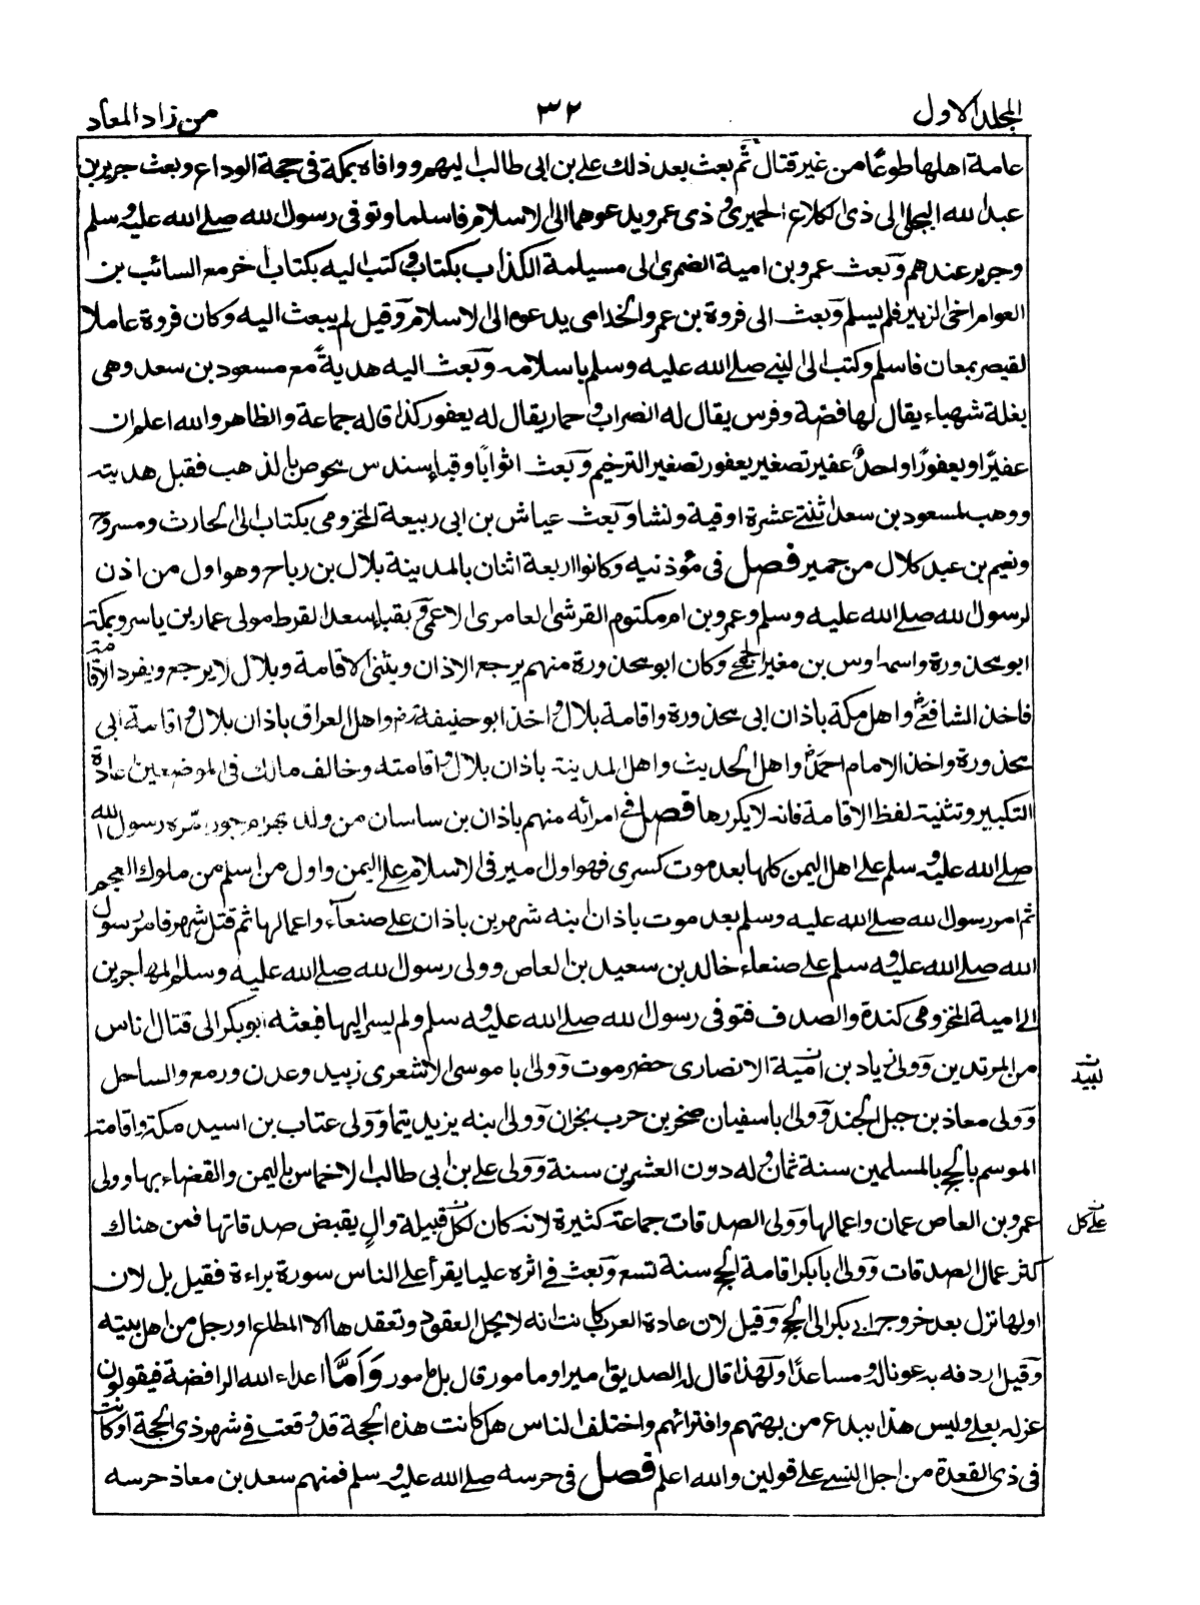 المجلد الاول
٣٢
من زاد المعاد
عامة اهلها طوعًا من غير قتال ثم بعث بعد ذلك علي بن ابى طالب اليهم ووافاه بمكة فى حجة الوداع وبعث جرير بن
عبد الله البجلى الى ذى الكلاع الحميرى و ذى عمرو يدعوهما الى الاسلام فاسلما وتوفى رسول الله صلى الله عليه وسلم
وجرير عندهم وبعث عمرو بن امية الضمرى الى مسيلمة الكذاب بكتاب وكتب اليه بكتاب اخر مع السائب بن
العوام اخى الزبير فلم يسلم وبعث الى فروة بن عمرو الخدامى يدعوه الى الاسلام وقيل لم يبعث اليه وكان فروة عاملا
لقيصر بمعان فاسلم وكتب الى النبى صلى الله عليه وسلم باسلامه وبعث اليه هدية مع مسعود بن سعد وهى
بغلة شهباء يقال لها فضة وفرس يقال له الضراب و حمار يقال له يعفور كذا قاله جماعة والظاهر والله اعلم ان
عفيرًا ويعفورًا واحدٌ عفير تصغير يعفور تصغير الترخيم وبعث اثوابًا وقباء سندس مخوص بالذهب فقبل هديته
ووهب لمسعود بن سعد اثنتى عشرة اوقية ونشا وبعث عياش بن ابى ربيعة المخزومى بكتاب الى الحارث ومسروح
ونعيم بن عبد كلال من حمير فصل فى مؤذنيه وكانوا اربعة اثنان بالمدينة بلال بن رباح وهو اول من اذن
لرسول الله صلى الله عليه وسلم وعمرو بن ام مكتوم القرشى العامرى الاعمى و بقباء سعد القرط مولى عمار بن ياسر وبمكة
ابو محذورة واسمه اوس بن مغير الجمحى وكان ابو محذورة منهم يرجع الاذان ويثنى الاقامة وبلال لا يرجع ويفرد الاقامة
فاخذ الشافعى رح واهل مكة باذان ابى محذورة واقامة بلال و اخذ ابو حنيفة رض واهل العراق باذان بلال و اقامة ابى
محذورة واخذ الامام احمد رح واهل الحديث واهل المدينة باذان بلال و اقامته وخالف مالك فى الموضعين اعادة
التكبير وتثنية لفظ الاقامة فانه لا يكررها فصل فى امرائه منهم باذان بن ساسان من ولد بهرام جور امّره رسول الله
صلى الله عليه وسلم على اهل اليمن كلها بعد موت كسرى فهو اول امير فى الاسلام على اليمن واول من اسلم من ملوك العجم
ثم امر رسول الله صلى الله عليه وسلم بعد موت باذان ابنه شهر بن باذان على صنعاء واعمالها ثم قتل شهر فامر رسول
الله صلى الله عليه وسلم على صنعاء خالد بن سعيد بن العاص وولى رسول الله صلى الله عليه وسلم المهاجر بن
ابى امية المخزومى كندة والصدف فتوفى رسول الله صلى الله عليه وسلم ولم يسر اليها فبعثه ابو بكر الى قتال اناس
من المرتدين وولى زياد بن امية الانصارى حضرموت وولى ابا موسى الاشعرى زبيد وعدن ورمع والساحل
ن لبيد
وولى معاذ بن جبل الجند وولى ابا سفيان صخر بن حرب نجران وولى ابنه يزيد تيما وولى عتاب بن اسيد مكة واقامة
الموسم بالحج بالمسلمين سنة ثمان و له دون العشرين سنة وولى على بن ابى طالب الاخماس باليمن والقضاء بها وولى
عمرو بن العاص عمان واعمالها وولى الصدقات جماعة كثيرة لانه كان لكل قبيلة والٍ يقبض صدقاتها فمن هناك
ن على كل
كثر عمال الصدقات وولى ابا بكر اقامة الحج سنة تسع وبعث فى اثره عليا يقرأ على الناس سورة براءة فقيل بل لان
اولها نزل بعد خروج ابى بكر الى الحج وقيل لان عادة العرب كانت انه لا يحل العقود وتعقدها الا المطاع او رجل من اهل بيته
وقيل اردفه به عونا له و مساعدًا ولهذا قال له الصديق امير او مامور قال بل مامور وَاَمَّا اعداء الله الرافضة فيقولون
عزله بعلى وليس هذا ببدع من بهتهم وافترائهم واختلف الناس هل كانت هذه الحجة قد وقعت فى شهر ذى الحجة او كانت
فى ذى القعدة من اجل النسئ على قولين والله اعلم فصل فى حرسه صلى الله عليه وسلم فمنهم سعد بن معاذ حرسه